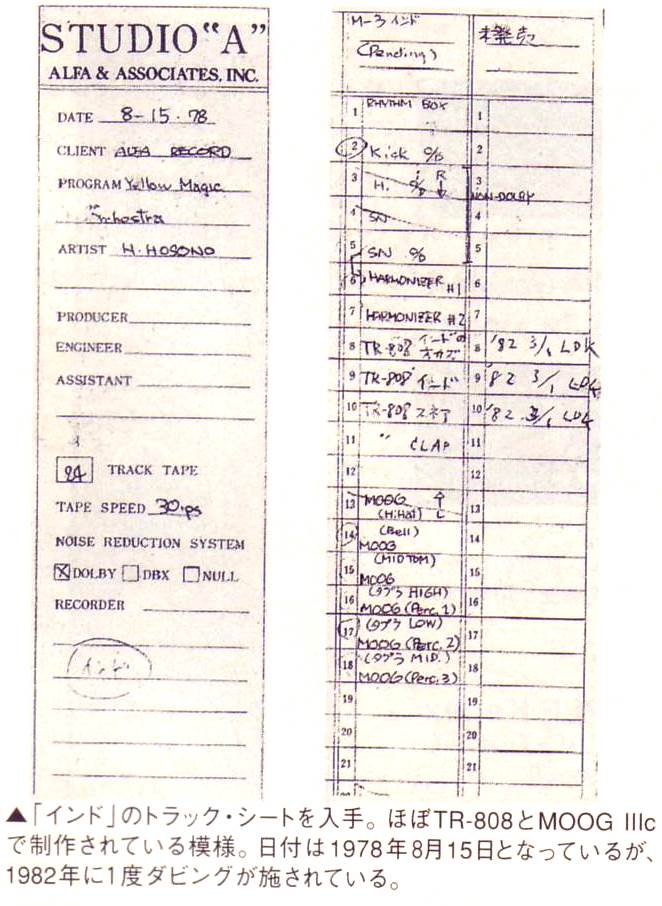 STUDIO "A"
ALFA & ASSOCIATES, INC.
DATE 8-15.78
CLIENT ALFA RECORD
PROGRAM Yellow Magic
Orchestra
ARTIST H. HOSONO
PRODUCER
ENGINEER
ASSISTANT
24 TRACK TAPE
TAPE SPEED 30ips
NOISE REDUCTION SYSTEM
☒DOLBY ☐DBX ☐NULL
RECORDER
インド
M-3 インド
(Pending)
未発売
1 RHYTHM BOX 1
2 Kick % 2
3 Hi. 3
NON-DOLBY
4 SN 4
5 SN % 5
6 HARMONIZER #1 6
7 HARMONIZER #2 7
8 TR-808 インドの オカズ 8 '82 3/1 LDK
9 TR-808 インド 9 '82 3/1 LDK
10 TR-808 スネア 10 '82 3/1 LDK
11 〃 CLAP 11
12 12
13 MOOG (HiHat) 13
14 (Bell) MOOG 14
15 (MID TOM) MOOG 15
16 (タブラ HIGH) MOOG (Perc. 1) 16
17 (タブラ LOW) MOOG (Perc. 2) 17
18 (タブラ MID.) MOOG (Perc. 3) 18
19 19
20 20
21 21
▲「インド」のトラック・シートを入手。ほぼTR-808とMOOG IIIc
で制作されている模様。日付は1978年8月15日となっているが、
1982年に1度ダビングが施されている。